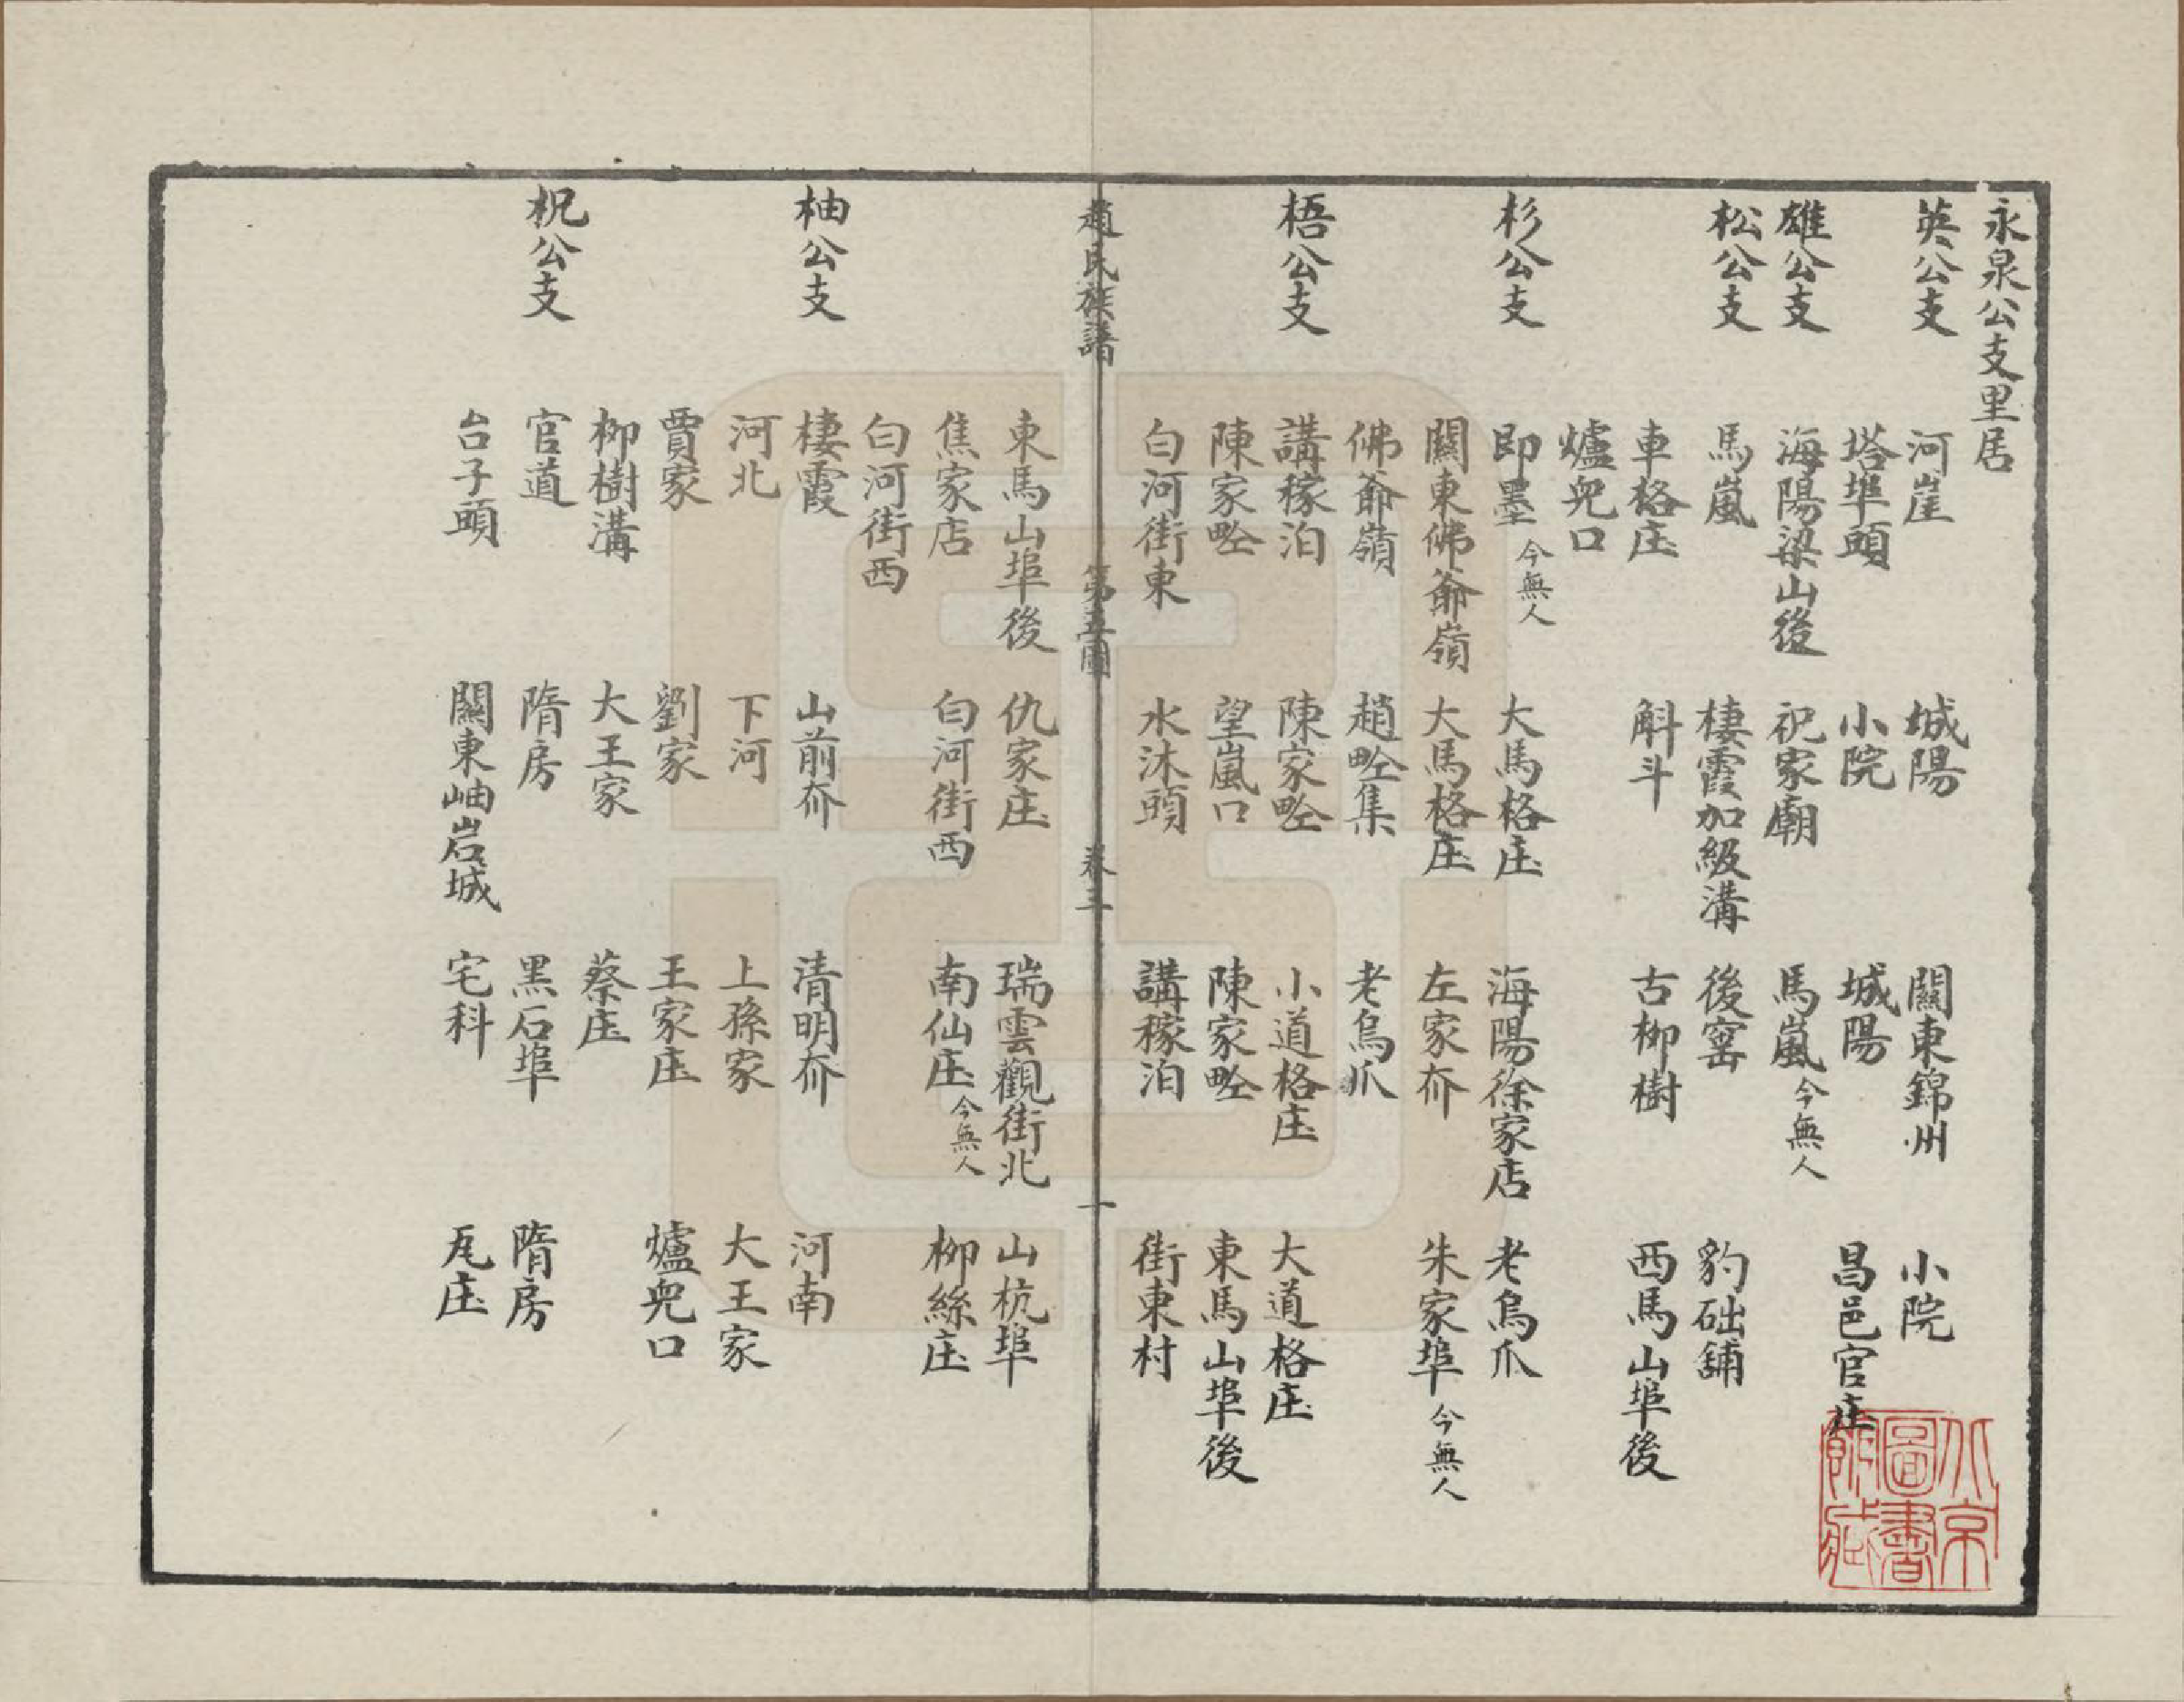 永泉公支里居
英公支 河崖 城陽 關東錦州 小院
塔埠頭 小院 城陽 昌邑官庄
雄公支 海陽梁山後 祝家廟 馬嵐今無人
松公支 馬嵐 棲霞加級溝 後窑 豹础舖
車格庄 斛斗 古柳樹 西馬山埠後
爐兜口
杉公支 即墨今無人 大馬格庄 海陽徐家店 老鳥爪
關東佛爺嶺 大馬格庄 左家夼 朱家埠今無人
佛爺嶺 趙畛集 老鳥爪
梧公支 講稼泊 陳家畛 小道格庄 大道格庄
陳家畛 望嵐口 陳家畛 東馬山埠後
白河街東 水沐頭 講稼泊 街東村
趙氏族譜 第五圖 卷三 一
東馬山埠後 仇家庄 瑞雲觀街北 山杭埠
焦家店 白河街西 南仙庄今無人 柳絲庄
白河街西
柚公支 棲霞 山前夼 清明夼 河南
河北 下河 上孫家 大王家
賈家 劉家 王家庄 爐兜口
柳樹溝 大王家 蔡庄
柷公支 官道 隋房 黑石埠 隋房
台子頭 關東岫岩城 宅科 瓦庄
北京
圖書
館藏